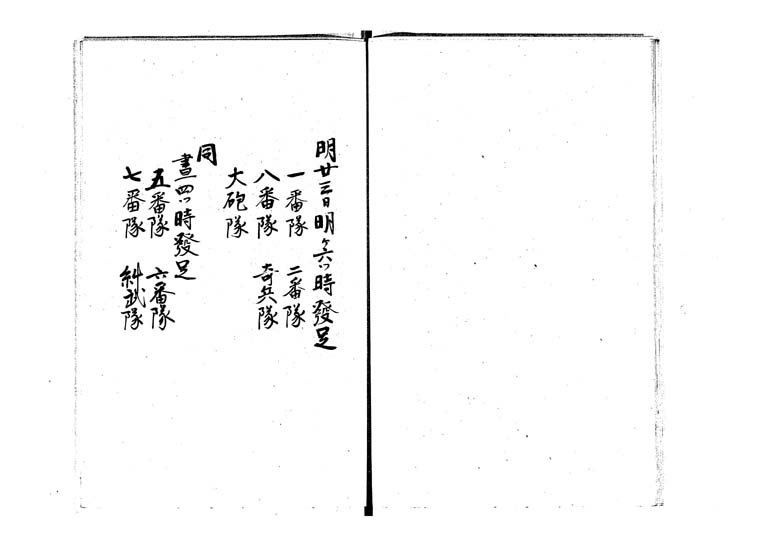 明廿三日明ヶ六ツ時發足
一番隊 二番隊
八番隊 奇兵隊
大砲隊
同
晝四ツ時發足
五番隊 六番隊
七番隊 糾武隊